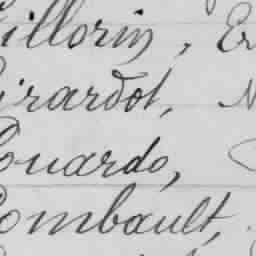 illorin, Er
irardot, N
ouardo,
ombault,